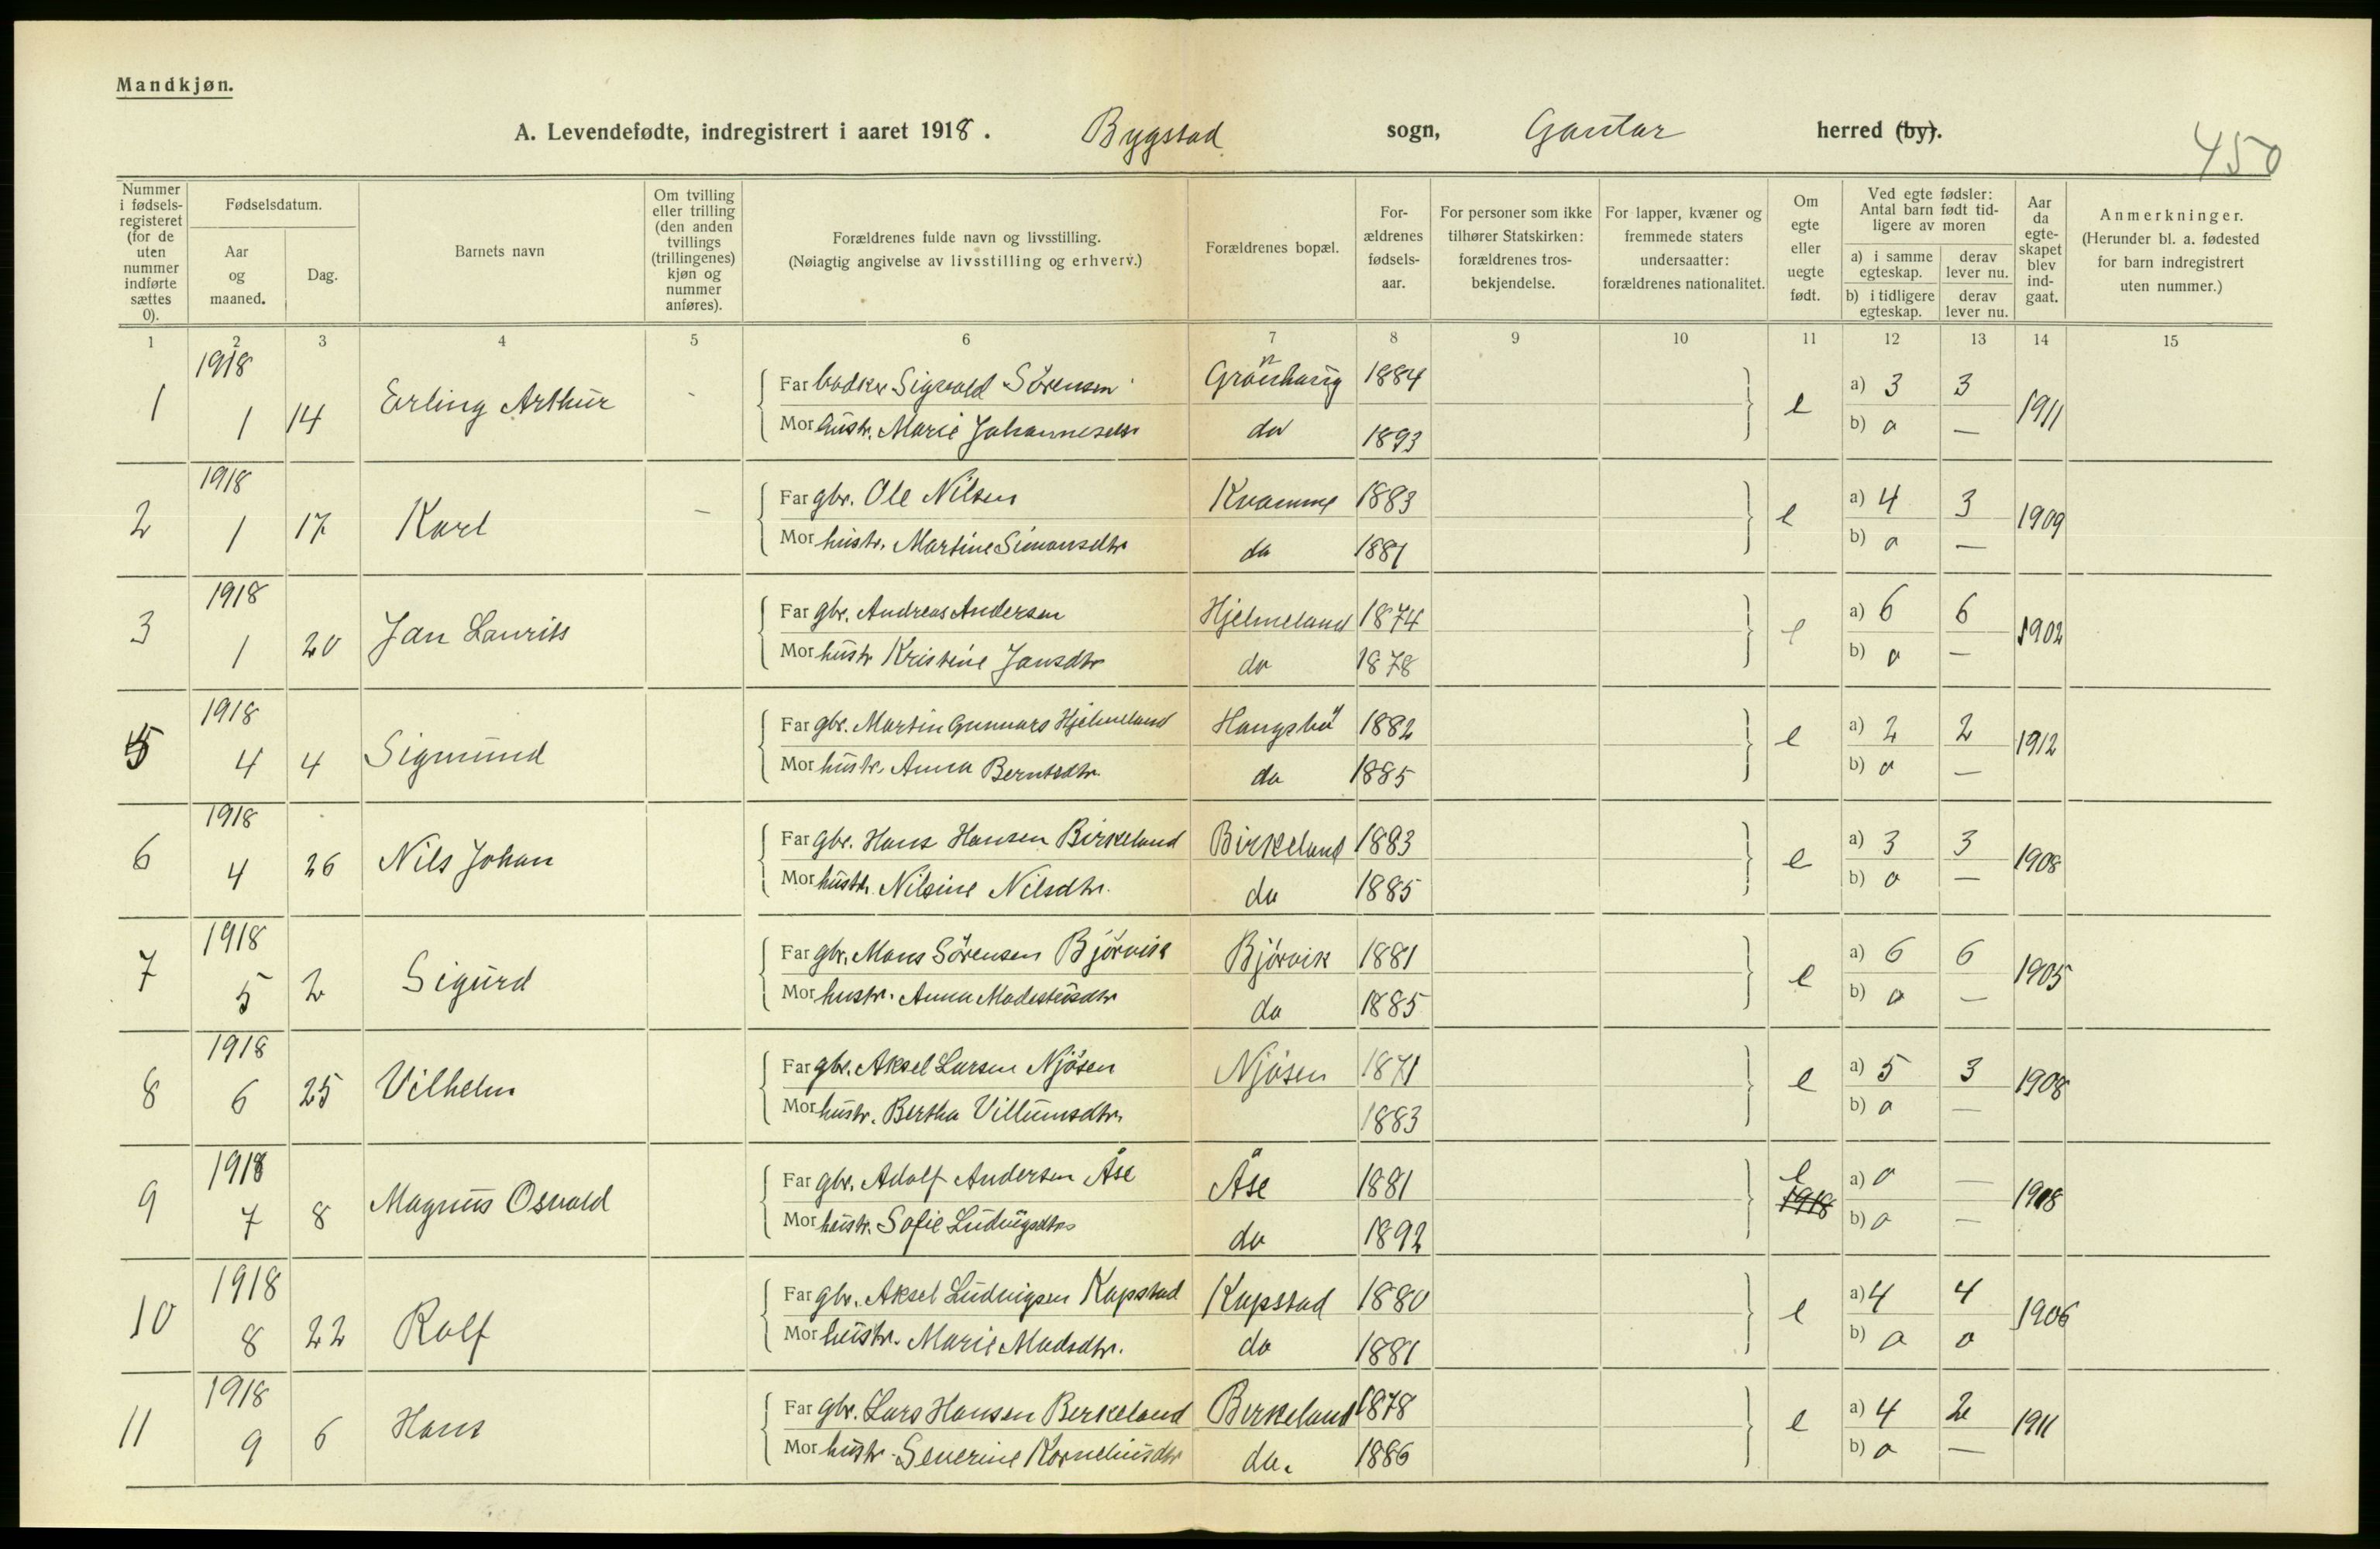 Mandkjøn.
A. Levendefødte, indregistrert i aaret 1918. Bygstad sogn, Gaular herred (by).
450
Nummer i fødselsregisteret (for de uten nummer indførte sættes 0).
Fødselsdatum.
Aar og maaned.
Dag.
Barnets navn
Om tvilling eller trilling (den anden tvillings (trillingenes) kjøn og nummer anføres).
Forældrenes fulde navn og livsstilling.
(Nøiagtig angivelse av livsstilling og erhverv.)
Forældrenes bopæl.
Forældrenes fødselsaar.
For personer som ikke tilhører Statskirken: forældrenes trosbekjendelse.
For lapper, kvæner og fremmede staters undersaatter: forældrenes nationalitet.
Om egte eller uegte født.
Ved egte fødsler: Antal barn født tidligere av moren
a) i samme egteskap.
derav lever nu.
b) i tidligere egteskap.
derav lever nu.
Aar da egteskapet blev indgaat.
Anmerkninger.
(Herunder bl. a. fødested for barn indregistrert uten nummer.)
1 2 3 4 5 6 7 8 9 10 11 12 13 14 15
1 1918 1 14 Erling Arthur - Far bødker Sigvald Sörensen Grönhaug 1884 e a) 3 3 1911
Mor hustr. Marie Johannesdtr do 1893 b) o —
2 1918 1 17 Karl — Far gbr. Ole Nilsen Kvamme 1883 e a) 4 3 1909
Mor hustr. Martine Simonsdtr do 1881 b) o —
3 1918 1 20 Jan Laurits Far gbr. Andreas Andersen Hjelmeland 1874 e a) 6 6 1902
Mor hustr Kristine Jansdtr do 1878 b) o —
5 1918 4 4 Sigmund Far gbr. Martin Gunnars Hjelmeland 1882 e a) 2 2 1912
Mor hustr. Anna Berntsdtr. do 1885 b) o —
6 1918 4 26 Nils Johan Far gbr. Hans Hansen Birkeland Birkeland 1883 e a) 3 3 1908
Mor hustr. Nilsine Nilsdtr. do 1885 b) o —
7 1918 5 2 Sigurd Far gbr. Mons Sörensen Björvik Björvik 1881 e a) 6 6 1905
Mor hustr. Anna Madsdtr do 1885 b) o —
8 1918 6 25 Vilhelm Far gbr. Aksel Larsen Njösen Njösen 1871 e a) 5 3 1908
Mor hustr. Bertha Villumsdtr. 1883 b) o —
9 1918 7 8 Magnus Osvald Far gbr. Adolf Andersen Åse Åse 1881 e 1918 a) o — 1918
Mor hustr. Sofie Ludvigsdtr do 1892 b) o —
10 1918 8 22 Rolf Far gbr. Aksel Ludvigsen Kapstad Kapstad 1880 e a) 4 4 1906
Mor hustr. Marie Madsdtr. do 1881 b) o o
11 1918 9 6 Hans Far gbr. Lars Hansen Berkeland Berkeland 1878 e a) 4 2 1911
Mor hustr. Severine Korneliusdtr do. 1886 b) o —